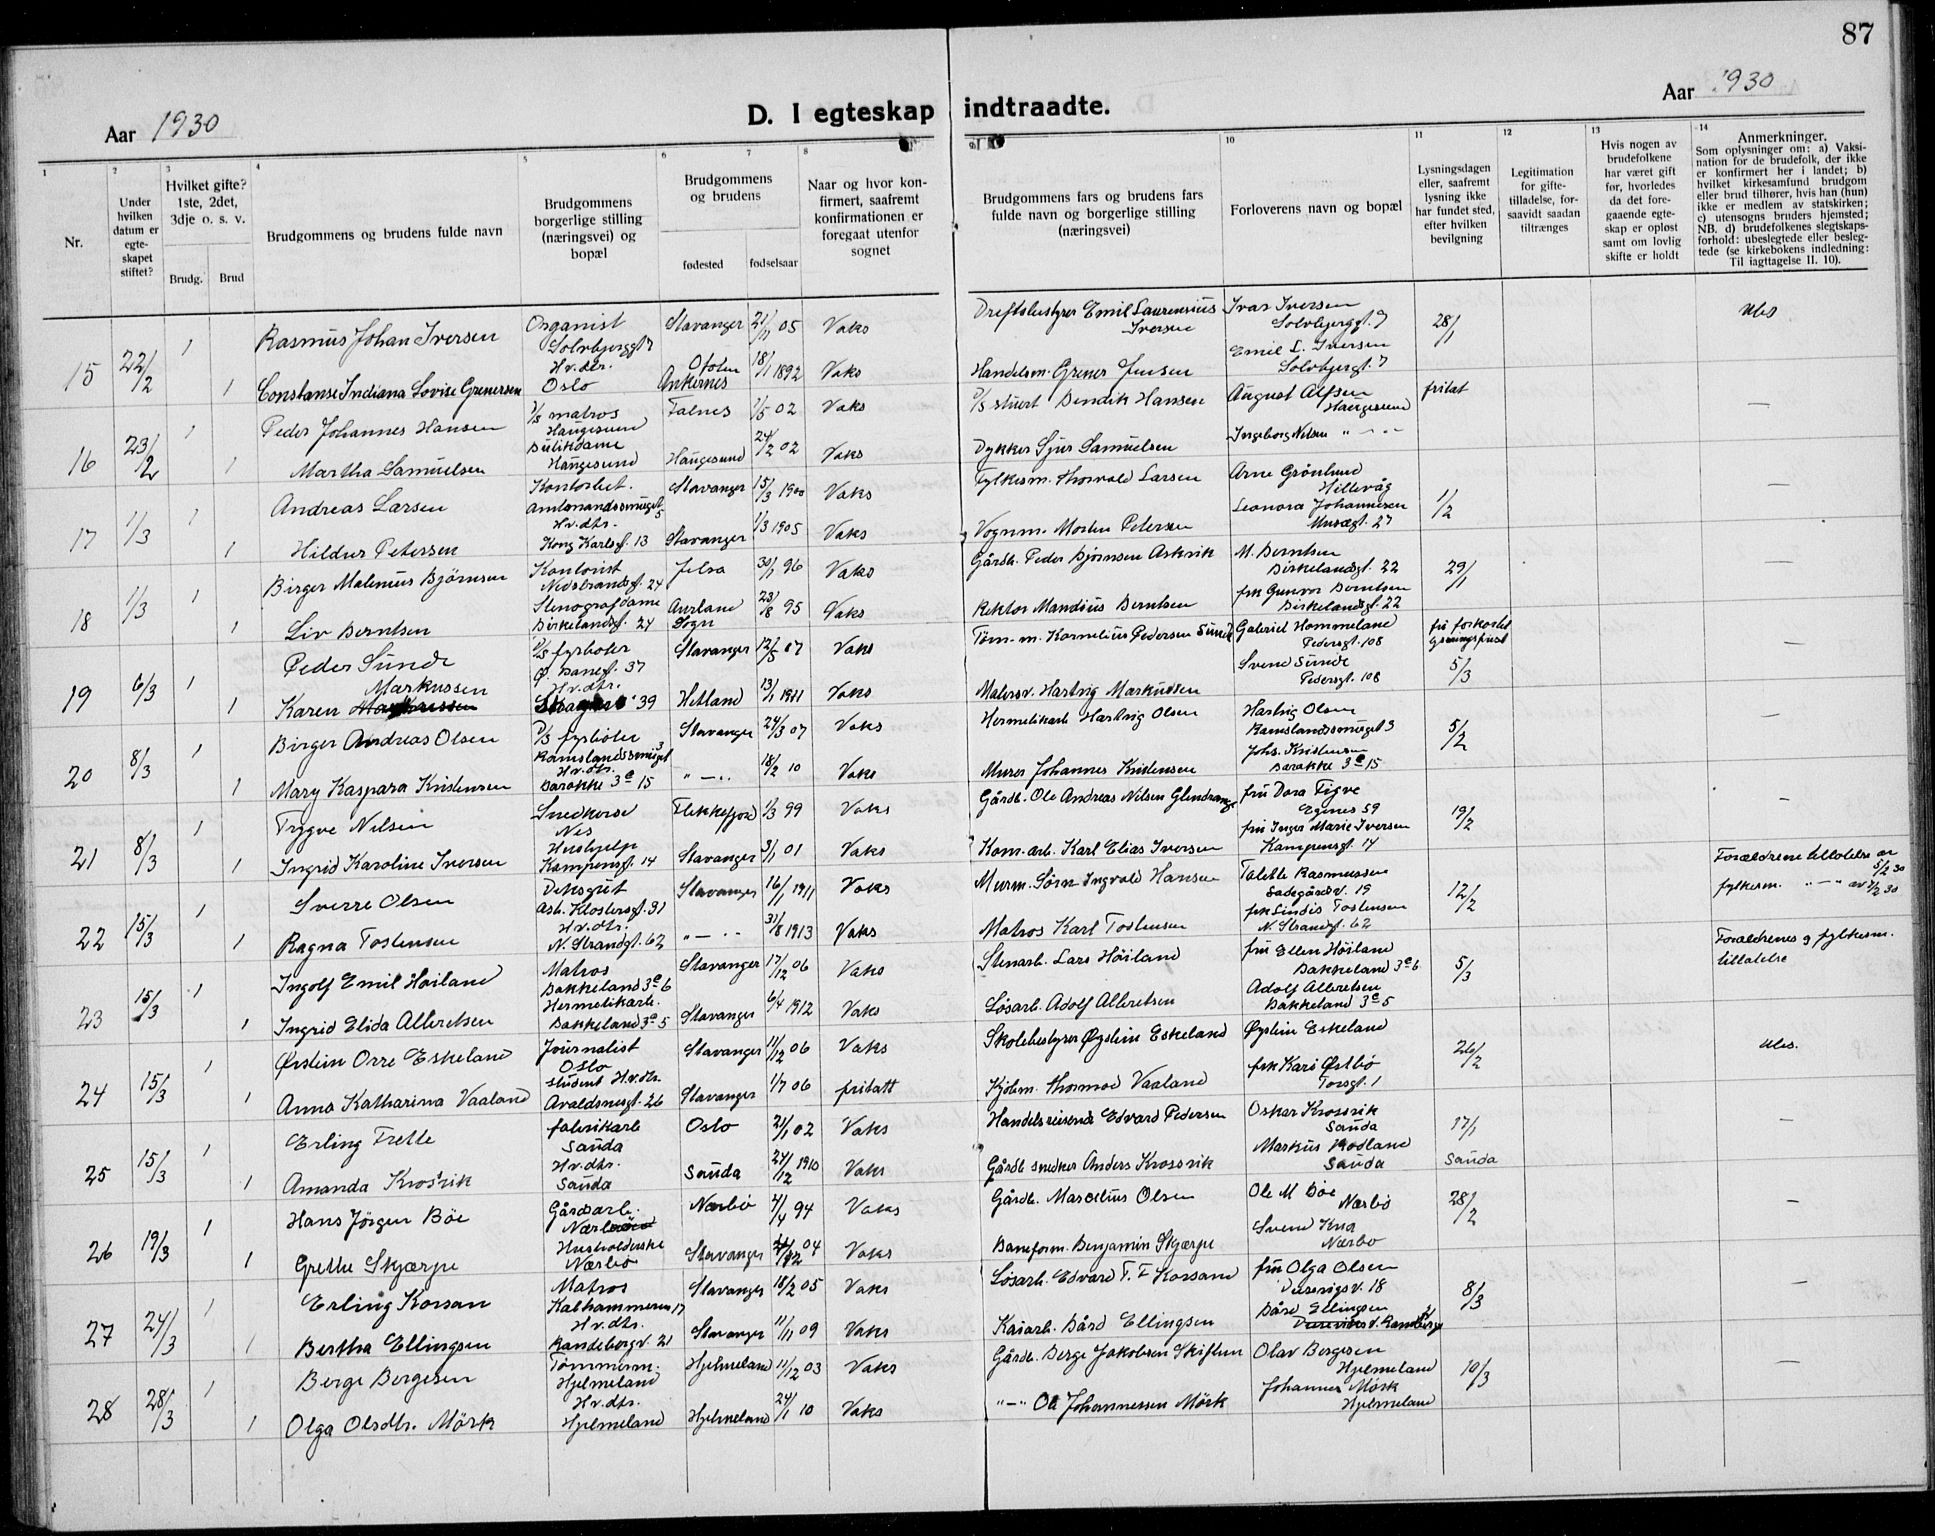 87
Aar 1930
D. I egteskap indtraadte.
Aar 1930
1
2
3
4
5
6
7
8
9
10
11
12
13
14
Nr.
Under hvilken datum er egte-skapet stiftet?
Hvilket gifte? 1ste, 2det, 3dje o. s. v.
Brudg.
Brud
Brudgommens og brudens fulde navn
Brudgommens borgerlige stilling (næringsvei) og bopæl
Brudgommens og brudens
fødested
fødselsaar
Naar og hvor kon-firmert, saafremt konfirmationen er foregaat utenfor sognet
Brudgommens fars og brudens fars fulde navn og borgerlige stilling (næringsvei)
Forloverens navn og bopæl
Lysningsdagen eller, saafremt lysning ikke har fundet sted, efter hvilken bevilgning
Legitimation for gifte-tilladelse, for-saavidt saadan tiltrænges
Hvis nogen av brudefolkene har været gift før, hvorledes da det fore-gaaende egte-skap er opløst samt om lovlig skifte er holdt
Anmerkninger.
Som oplysninger om: a) Vaksi-nation for de brudefolk, der ikke er konfirmert her i landet; b) hvilket kirkesamfund brudgom eller brud tilhører, hvis han (hun) ikke er medlem av statskirken; c) utensogns bruders hjemsted; NB. d) brudefolkenes slegtskaps-forhold: ubeslegtede eller besleg-tede (se kirkebokens indledning: Til iagttagelse II. 10).
15 22/2 1 Rasmus Johan Iversen Organist Solvbjerggt 7 Stavanger 21/11 05 Vaks Driftsbestyrer Emil Laurensius Iversen Ivar Iversen Solvbjerggt. 7 28/1 Ubs
1 Constanse Indiana Lovise Grenersen Hv.dtr. Oslo Ofoten Ankernes 18/1 1892 Vaks Handelsm. Grener Jensen Emil L. Iversen Solvbjergt. 7
16 23/2 1 Peder Johannes Hansen D/S matros Haugesund Falnes 1/5 02 Vaks D/S stuert Bendik Hansen August Alfsen Haugesund fritat —
1 Martha Samuelsen Butikdame Haugesund Haugesund 24/2 02 Vaks Dykker Sjur Samuelsen Ingeborg Nilsen " — "
17 1/3 1 Andreas Larsen Kontorbet. Amtmandssmuget 5 Stavanger 15/3 1900 Vaks Fylkesm. Thorvald Larsen Arne Grönlund Hillevåg 1/2 —
1 Hildur Petersen Hv.dtr. Kong Karlsgt. 13 Stavanger 1/3 1905 Vaks Vognm. Morten Petersen Leonora Johannesen Musegt. 27
18 1/3 1 Birger Malenius Bjørnsen Kontorist Nedstrandsgt. 24 Jelsa 30/1 96 Vaks Gårdb. Peder Bjørnsen Askvik M. Berntsen Birkelandsgt. 22 29/1 —
1 Liv Berntsen Stenografdame Birkelandsgt. 24 Aurland Sogn 23/8 95 Vaks Rektor Mandius Berntsen frk Gunvor Berntsen Birkelandsgt. 22
19 6/3 1 Peder Sunde D/S fyrbøter Ø. Banegt. 37 Stavanger 12/5 07 Vaks Tøm.m. Kornelius Pedersen Sunde Gabriel Hommeland Pedersgt. 108 fri forkortet lysningsfrist 5/3 —
1 Karen Markussen Hv.dtr. 39 Hetland 13/1 1911 Vaks Malersv. Hartvig Markussen Svend Sunde Pedersgt. 108
20 8/3 1 Birger Andreas Olsen D/S fyrbøter Ramslandssmuget 3 Stavanger 24/3 07 Vaks Hermetikarb. Hartvig Olsen Hartvig Olsen Ramslandssmuget 3 5/2 —
1 Mary Kaspara Kristensen Hv.dtr. Barakke 3e 15 " — " 18/2 10 Vaks Murer Johannes Kristensen Johs. Kristensen Barakke 3e 15
21 8/3 1 Trygve Nilsen Snedkersv. Nes Flekkefjord 1/3 99 Vaks Gårdb. Ole Andreas Nilsen Glendrange fru Dora Tigve Egenes 59 19/2 —
1 Ingrid Karoline Iversen Hushjelp Kampensgt. 14 Stavanger 3/1 01 Vaks Kom.arb. Karl Elias Iversen fru Inger Marie Iversen Kampensgt 14
22 15/3 1 Sverre Olsen Deksgut Asb. Klostersgt. 31 Stavanger 16/1 1911 Vaks Murm. Sörn Ingvald Hansen Toleble Rasmussen Ladegårdsv. 19 12/2 Forældrene tillatelse av 5/2 30 fylkesm. " — " av 7/2 30
1 Ragna Tostensen Hv.dtr. N. Strandgt. 62 " — " 31/8 1913 Vaks Matros Karl Tostensen frk Lindis Tostensen N. Strandgt. 62
23 15/3 1 Ingolf Emil Höiland Matros Bakkeland 3e 6 Stavanger 17/12 06 Vaks Stenarb. Lars Höiland fru Ellen Höiland Bakkeland 3e 6 5/3 Forældrenes og fylkesm. tillatelse
1 Ingrid Elida Albretsen Hermetikarb. Bakkeland 3e 5 Stavanger 6/4 1912 Vaks Løsarb. Adolf Albretsen Adolf Albretsen Bakkeland 3e 5
24 15/3 1 Øistein Orre Eskeland Journalist Oslo Stavanger 11/12 06 Vaks Skolebestyrer Øystein Eskeland Øystein Eskeland 26/2 Ubs.
1 Anna Katharina Vaaland student Hv.dtr. Avaldsnesgt. 26 Stavanger 1/7 06 fritatt Kjøbm. Thormod Vaaland frk Kari Østbö Torsgt. 1
25 15/3 1 Erling Fretle fabrikarb Sauda Oslo 21/1 02 Vaks Handelsreisende Edvard Pedersen Oskar Krossvik Sauda 17/1 —
1 Amanda Krossvik Hv.dtr. Sauda Sauda 24/12 1910 Vaks Gårdb. snedker Anders Krossvik Markus Rodland Sauda Sauda
26 19/3 1 Hans Jörgen Böe Gårdarb. Nærbö Nærbö 4/4 94 Vaks Gårdb. Marselius Olsen Ole M Böe Nærbö 28/2 —
1 Grethe Skjærpe Husholderske Nærbö Stavanger 12 04 Vaks Baneform. Benjamin Skjærpe Svend Kna Nærbo
27 24/3 1 Erling Korsan Matros Kalhammeren 17 Stavanger 18/2 05 Vaks Løsarb. Edvard T. F Korsand fru Olga Olsen Dusevigsv. 18 8/3 —
1 Bertha Ellingsen Hv.dtr. Randebergv. 21 Stavanger 11/11 09 Vaks Kaiarb. Bård Ellingsen Bård Ellingsen
28 28/3 1 Berge Bergesen Tömmerm. Hjelmeland Hjelmeland 11/12 03 Vaks Gårdb. Berge Jakobsen Skiftun Olav Bergesen Hjelmeland 10/3 —
1 Olga Olsdtr. Mörk Hv.dtr. Hjelmeland Hjelmeland 24/1 10 Vaks " — " Ola Johannessen Mörk Johannes Mörk Hjelmeland